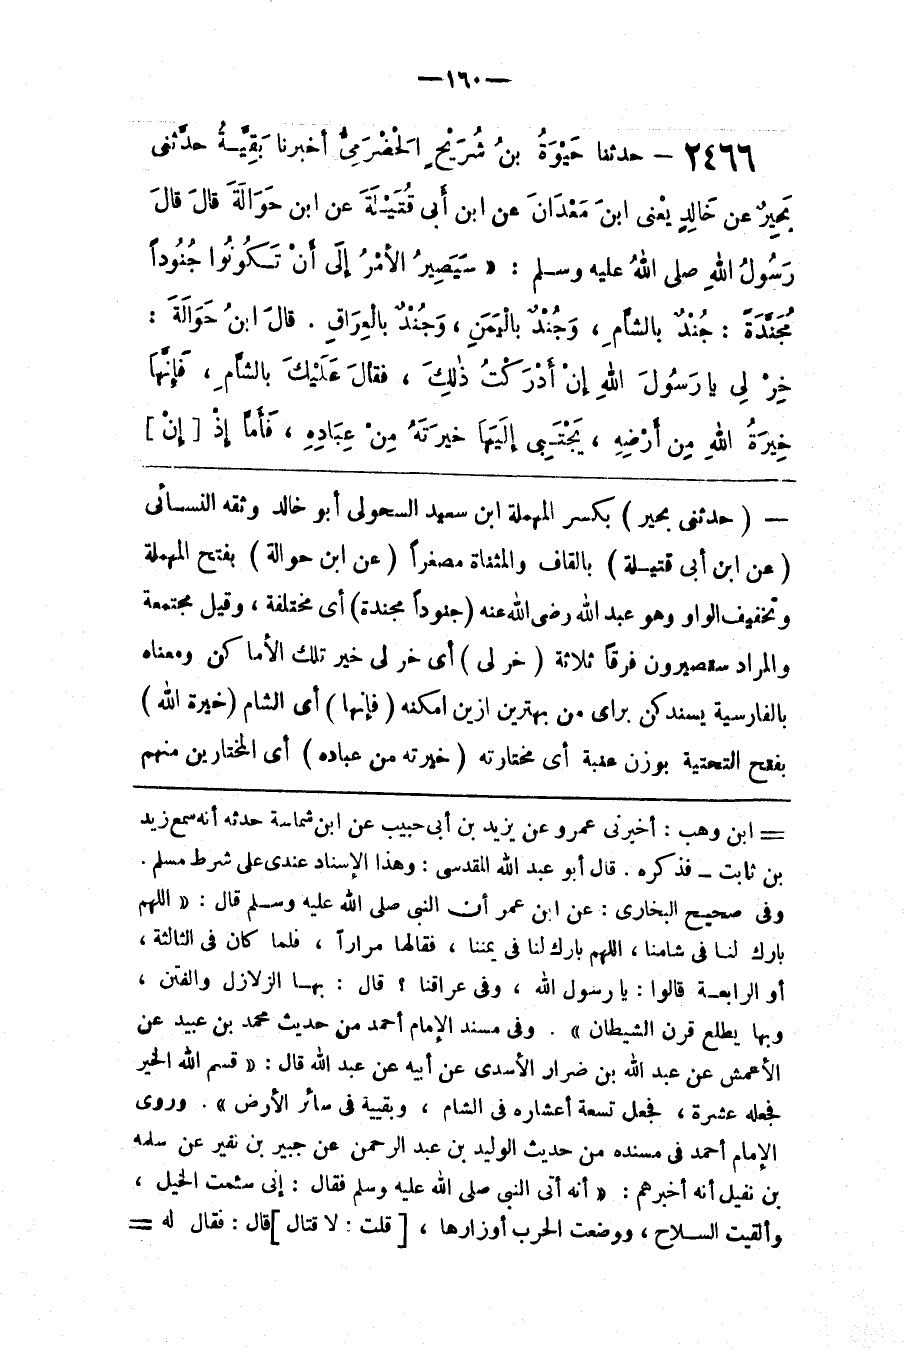 —١٦٠—
٢٤٦٦ – حدثنا حَيْوَةُ بنُ شُرَيْحٍ الَحْضْرَمِىُّ أخبرنا بَقِيَّـةُ حدَّثنى
بَحِيرٌ عن خَالِدٍ يَعْنى ابنَ مَعْدَانَ عن ابن أَبى قُتَيْـلَةَ عن ابن حَوَالَةَ قالَ قالَ
رَسُولُ اللهِ صلى اللهُ عليه وسـلم : « سَيَصِيرُ الأمْرُ إلَى أَنْ تَـكُونُوا جُنُوداً
مُجَنَّدَةً : جُنْدٌ بالشاَّمِ ، وَجُنْدٌ بالْيَمَنِ ، وَجُنْدٌ بالْعِرَاقِ . قالَ ابنُ حَوَالَةَ :
خِرْ لِى يا رَسُولَ اللهِ إنْ أَدْرَكْتُ ذٰلِكَ ، فقالَ عَلَيْكَ بالشاَّمِ ، فَإِنَّهَا
خِيرَةُ اللهِ مِن أَرْضِهِ ، يَجْتَـبِى إلَيْهَا خيرَتَهُ مِنْ عِبَادِهِ ، فَأَمَّا إذْ [ إنْ ]
— ( حدثنى بحير ) بكسر المهملة ابن سعيد السحولى أبو خالد وثقه النسـائى
( عن ابن أبى قتيـلة ) بالقاف والمثناة مصغراً ( عن ابن حوالة ) بفتح المهملة
وتخفيف الواو وهو عبد الله رضى الله عنه (جنوداً مجندة) أى مختلفة ، وقيل مجتمعة
والمراد ستصيرون فرقاً ثلاثة ( خر لى ) أى خر لى خير تلك الأماكن ومعناه
بالفارسية پسند كن براى من بهترين ازين امكنه ( فإنها ) أى الشام (خيرة الله )
بفتح التحتية بوزن عنبة أى مختارته ( خيرته من عباده ) أى المختارين منهم
= ابن وهب : أخبرنى عمرو عن يزيد بن أبى حبيب عن ابن شماسة حدثه أنه سمع زيد
بن ثابت – فذكره . قال أبو عبد الله المقدسى : وهذا الإسناد عندى على شرط مسلم .
وفى صحيح البخارى : عن ابن عمر أن النبى صلى الله عليه وسـلم قال : « اللهم
بارك لنـا فى شامنا ، اللهم بارك لنا فى يمننا ، فقالها مراراً ، فلما كان فى الثالثة ،
أو الرابعـة قالوا : يا رسول الله ، وفى عراقنا ؟ قال : بهـا الزلازل والفتن ،
وبها يطلع قرن الشيطان » . وفى مسند الإمام أحمد من حديث محمد بن عبيد عن
الأعمش عن عبد الله بن ضرار الأسدى عن أبيه عن عبد الله قال : « قسم الله الخير
فجعله عشرة ، فجعل تسعة أعشاره فى الشام ، وبقيية فى سائر الأرض » . وروى
الإمام أحمد فى مسنده من حديث الوليد بن عبد الرحمن عن جبير بن نفير عن سلمه
بن نفيل أنه أخبرهم : « أنه أتى النبى صلى الله عليه وسلم فقال : إنى سئمت الخيل ،
وألقيت السـلاح ، ووضعت الحرب أوزارها ، [ قلت : لا قتال ] قال : فقال له =